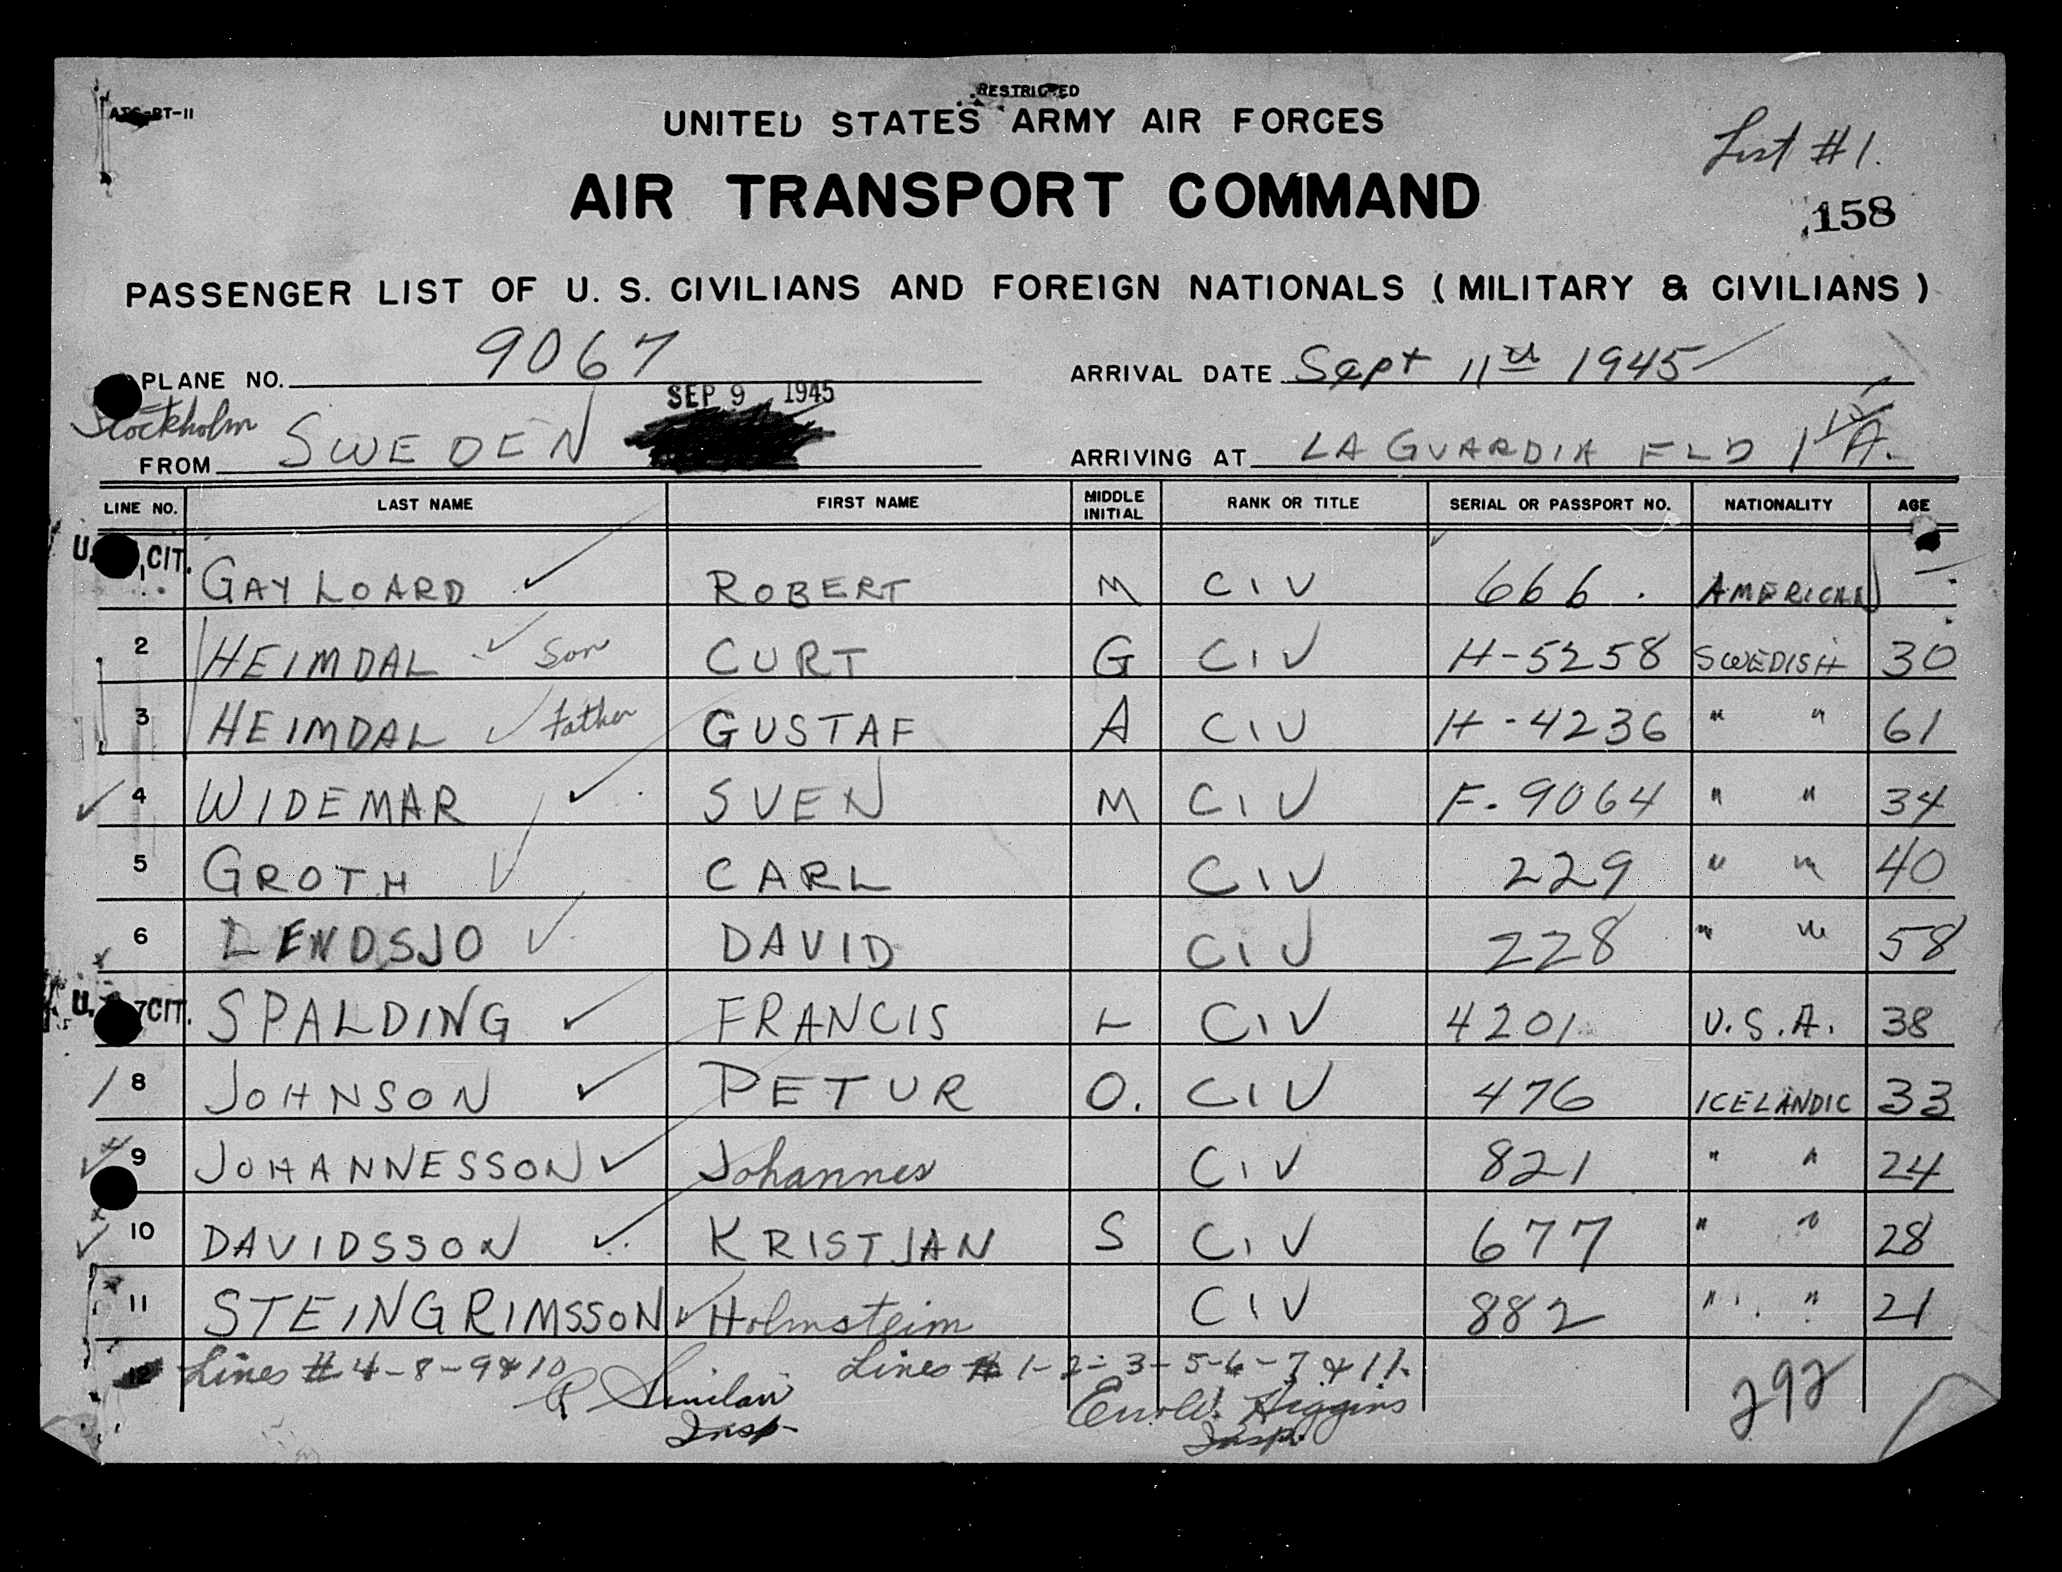 RESTRICTED
ATC-PT-11
UNITED STATES ARMY AIR FORCES
List #1.
AIR TRANSPORT COMMAND
158
PASSENGER LIST OF U. S. CIVILIANS AND FOREIGN NATIONALS (MILITARY & CIVILIANS)
PLANE NO. 9067 ARRIVAL DATE Sept 11th 1945
SEP 9 1945
Stockholm
FROM SWEDEN ARRIVING AT LA GUARDIA FLD 1 A.
LINE NO. LAST NAME FIRST NAME MIDDLE INITIAL RANK OR TITLE SERIAL OR PASSPORT NO. NATIONALITY AGE
U. CIT. 1 GAYLOARD ROBERT M CIV 666 AMERICAN —
2 HEIMDAL Son CURT G CIV H-5258 SWEDISH 30
3 HEIMDAL Father GUSTAF A CIV H-4236 " " 61
4 WIDEMAR SVEN M CIV F-9064 " " 34
5 GROTH CARL CIV 229 " " 40
6 LENDSJO DAVID CIV 228 " " 58
U. 7 CIT. SPALDING FRANCIS L CIV 4201 U.S.A. 38
8 JOHNSON PETUR O. CIV 476 ICELANDIC 33
9 JOHANNESSON Johannes CIV 821 " " 24
10 DAVIDSSON KRISTJAN S CIV 677 " " 28
11 STEINGRIMSSON Holmsteim CIV 882 " " 21
12 Lines # 4-8-9&10 Lines # 1-2-3-5-6-7&11. 292
Insp. Higgins
Insp.